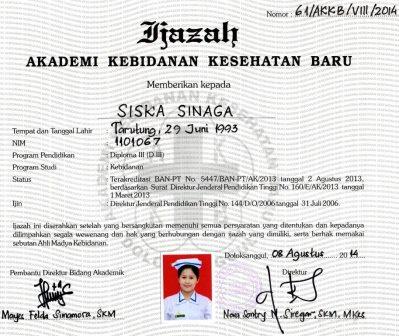 Nomor : 61/AKKB/VIII/2014
Ijazah
AKADEMI KEBIDANAN KESEHATAN BARU
Memberikan kepada
SISKA SINAGA
Tempat dan Tanggal Lahir : Tarutung, 29 Juni 1993
NIM : 1101067
Program Pendidikan : Diploma III (D.III)
Program Studi : Kebidanan
Status : Terakreditasi BAN-PT No. 5447/BAN-PT/AK/2013 tanggal 2 Agustus 2013,
berdasarkan Surat Direktur Jenderal Pendidikan Tinggi No. 160/E/AK/2013 tanggal
1 Maret 2013
Ijin : Direktur Jenderal Pendidikan Tinggi No. 144/D/O/2006 tanggal 31 Juli 2006.
Ijazah ini diserahkan setelah yang bersangkutan memenuhi semua persyaratan yang ditentukan dan kepadanya
dilimpahkan segala wewenang dan hak yang berhubungan dengan ijazah yang dimiliki, serta berhak memakai
sebutan Ahli Madya Kebidanan.
Doloksanggul, 08 Agustus 2014
Pembantu Direktur Bidang Akademik
Direktur
Mayes Felda Simamora, SKM
Nova Sentry N. Siregar, SKM, MKes